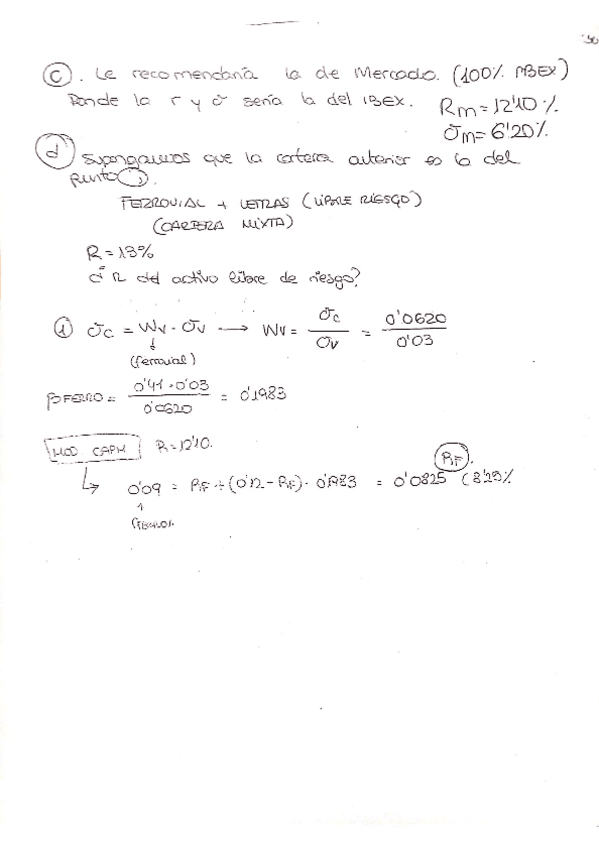 30
c). Le recomendaría la de Mercado. (100% IBEX)
Donde la r y σ sería la del IBEX. Rm = 12'10%
σm = 6'20%
d) Supongamos que la cartera anterior es la del
punto
FERROVIAL + LETRAS (LIBRE RIESGO)
(CARTERA MIXTA)
R = 13%
d R del activo libre de riesgo?
① σc = Wv · σv → Wv = σc / σv = 0'0620 / 0'03
(ferrovial)
βFERRO = 0'41 · 0'03 / 0'0620 = 0'1983
MOD CAPM R = 12'10.
RF.
0'09 = RF + (0'12 - RF) · 0'1983 = 0'0825 (8'25%